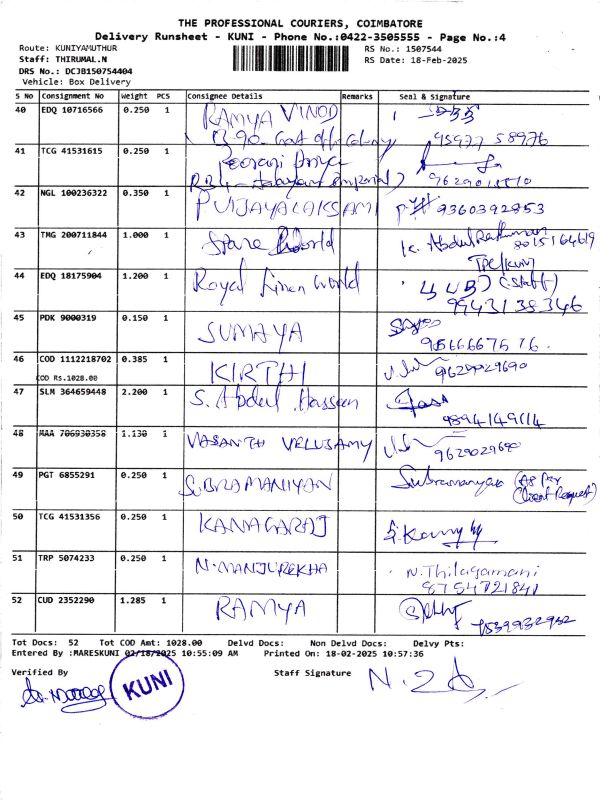 THE PROFESSIONAL COURIERS, COIMBATORE
Delivery Runsheet - KUNI - Phone No.:0422-3505555 - Page No.:4
Route: KUNIYAMUTHUR
RS No.: 1507544
Staff: THIRUMAL.N
RS Date: 18-Feb-2025
DRS No.: DCJB150754404
Vehicle: Box Delivery
S No Consignment No Weight PCS Consignee Details Remarks Seal & Signature
40 EDQ 10716566 0.250 1 RAMYA VINOD
95977 58976
41 TCG 41531615 0.250 1
42 NGL 100236322 0.350 1 P VIJAYALAKSAMI 9360392853
43 TMG 200711844 1.000 1 Spare World K. Abdul Rahuman
8015164619
44 EDQ 18175904 1.200 1 Royal Linen World (Staff)
9943138346
45 PDK 9000319 0.150 1 SUMAYA
46 COD 1112218702 0.385 1 KIRTHI 9629029690
COD Rs.1028.00
47 SLM 364659448 2.200 1 S. Abdul Hasseen
9894149114
48 MAA 706930358 1.130 1 VASANTH VELUSAMY 9629029690
49 PGT 6855291 0.250 1 SUBRAMANIYAN Subramanyan (As Per
Client Request)
50 TCG 41531356 0.250 1 KANAGARAJ
51 TRP 5074233 0.250 1 N.MANJUREKHA N.Thilagamani
8754721841
52 CUD 2352290 1.285 1 RAMYA
Tot Docs: 52 Tot COD Amt: 1028.00 Delvd Docs: Non Delvd Docs: Delvy Pts:
Entered By :MARESKUNI 02/18/2025 10:55:09 AM Printed On: 18-02-2025 10:57:36
Verified By Staff Signature
KUNI